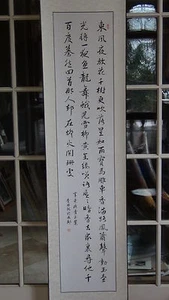 東風夜放花千樹更吹落星如雨寶馬雕車香滿路鳳簫聲動玉壺
光轉一夜魚龍舞蛾兒雪柳黃金縷笑語盈々暗香去眾裏尋他千
百度驀然回首那人卻在燈火闌珊處
辛棄疾青玉案